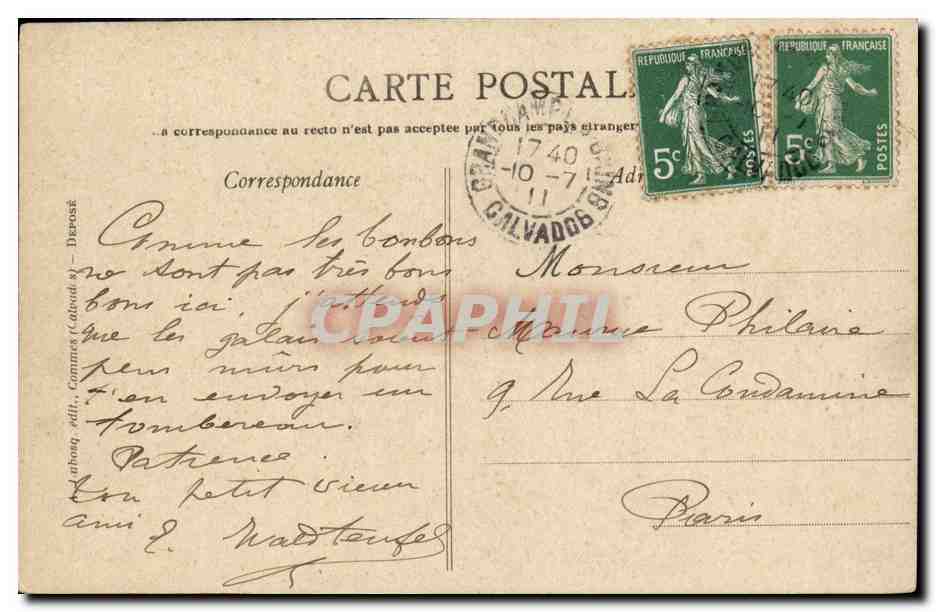 CARTE POSTAL
a correspondance au recto n'est pas acceptee par tous les pays etranger
Correspondance
Adr
REPUBLIQUE FRANÇAISE
5c
POSTES
REPUBLIQUE FRANÇAISE
5c
POSTES
17 40
10 - 7
11
CALVADOS
Comme les bonbons
ne sont pas très bons
bons ici, j'attends
que les galais soient
peu mûrs pour
t'en envoyer un
tombereau.
Patience.
ton petit vieux
ami E. Waldteufel
Monsieur
Maurice Philaire
9, Rue La Condamine
Paris
Dubosq, édit., Commes (Calvados) — DEPOSÉ
CPAPHIL